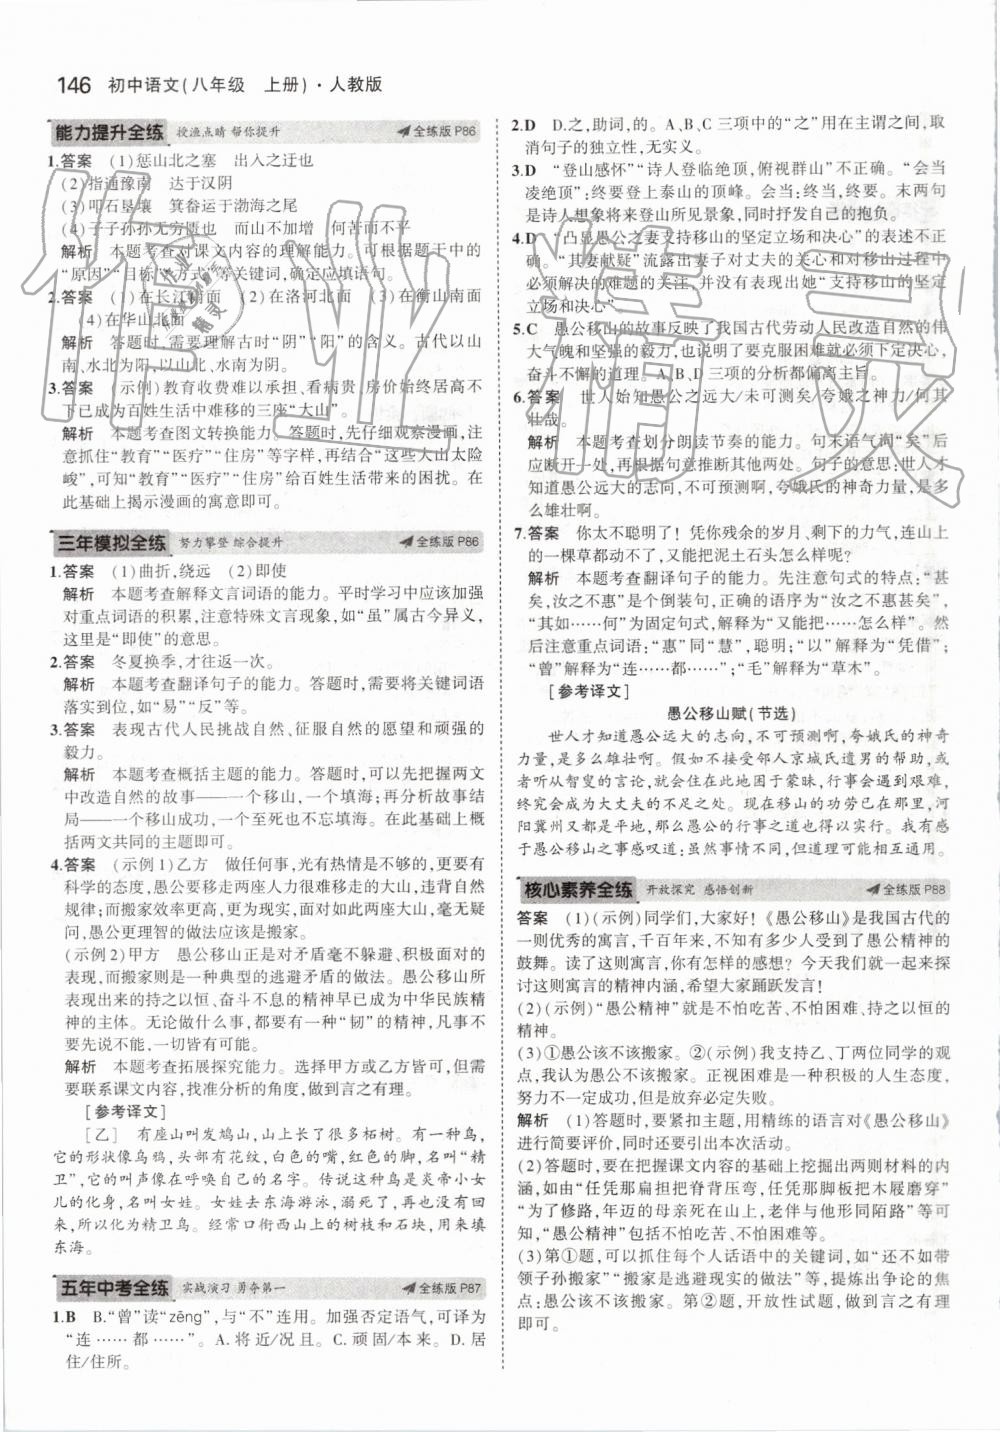 146 初中语文(八年级 上册)·人教版
能力提升全练 授渔点睛 帮你提升 全练版 P86
1.答案 (1)惩山北之塞 出入之迂也
(2)指通豫南 达于汉阴
(3)叩石垦壤 箕畚运于渤海之尾
(4)子子孙孙无穷匮也 而山不加增 何苦而不平
解析 本题考查对课文内容的理解能力。可根据题干中的
“原因”“目标”“方式”等关键词,确定应填语句。
2.答案 (1)在长江南面 (2)在洛河北面 (3)在衡山南面
(4)在华山北面
解析 答题时,需要理解古时“阴”“阳”的含义。古代以山
南、水北为阳,以山北、水南为阴。
3.答案 (示例)教育收费难以承担、看病贵、房价始终居高不
下已成为百姓生活中难移的三座“大山”。
解析 本题考查图文转换能力。答题时,先仔细观察漫画,注
意抓住“教育”“医疗”“住房”等字样,再结合“这些大山太险
峻”,可知“教育”“医疗”“住房”给百姓生活带来的困扰。在
此基础上揭示漫画的寓意即可。
三年模拟全练 努力攀登 综合提升 全练版 P86
1.答案 (1)曲折,绕远 (2)即使
解析 本题考查解释文言词语的能力。平时学习中应该加强
对重点词语的积累,注意特殊文言现象,如“虽”属古今异义,
这里是“即使”的意思。
2.答案 冬夏换季,才往返一次。
解析 本题考查翻译句子的能力。答题时,需要将关键词语
落实到位,如“易”“反”等。
3.答案 表现古代人民挑战自然、征服自然的愿望和顽强的
毅力。
解析 本题考查概括主题的能力。答题时,可以先把握两文
中改造自然的故事——一个移山,一个填海;再分析故事结
局——一个移山成功,一个至死也不忘填海。在此基础上概
括两文共同的主题即可。
4.答案 (示例1)乙方 做任何事,光有热情是不够的,更要有
科学的态度,愚公要移走两座人力很难移走的大山,违背自然
规律;而搬家效率更高,更为实际,因此面对如此两座大山,毫
无疑问,愚公更理智的做法应该是搬家。
(示例2)甲方 愚公移山正是对矛盾毫不躲避、积极面对的
表现,而搬家则是一种典型的逃避矛盾的做法。愚公移山所
表现出来的持之以恒、奋斗不息的精神早已成为中华民族精
神的主体。无论做什么事,都要有一种“韧”的精神,凡事不
要先说不能,一切皆有可能。
解析 本题考查拓展探究能力。选择甲方或乙方皆可,但是
需要联系课文内容,找准分析的角度,做到言之有理。
[参考译文]
[乙] 有座山叫发鸠山,山上长了很多柘树。有一种鸟,
它的形状像乌鸦,头部有花纹,白色的嘴,红色的脚,名叫“精
卫”,它的叫声像在呼唤自己的名字。传说这种鸟是炎帝小女
儿的化身,名叫女娃。女娃去东海游泳,溺死了,再也没有回
来,所以化为精卫鸟。经常口衔西山上的树枝和石块,用来填
东海。
五年中考全练 实战演习 勇夺第一 全练版 P87
1.B B.“曾”读“zēng”,与“不”连用。加强否定语气,可译为
“连……都……”。A.将近/况且。C.顽固/本来。D.居
住/住所。
2.D D.之,助词,的。A、B、C三项中的“之”用在主谓之间,取
消句子的独立性,无实义。
3.D “登山感怀”“诗人登临绝顶,俯视群山”不正确。“会当
凌绝顶”:终要登上泰山的顶峰。会当:终当,终要。末两句
是诗人想象将来登山所见景象,同时抒发自己的抱负。
4.D “凸显愚公之妻支持移山的坚定立场和决心”的表述不正
确。“其妻献疑”流露出妻子对丈夫的关心和对移山过程中
必须解决的难题的关注,并没有表现出她“支持移山的坚定
立场和决心”。
5.C 愚公移山的故事反映了我国古代劳动人民改造自然的伟
大气魄和坚强的毅力,也说明了要克服困难就必须下定决心,
奋斗不懈的道理。A、B、D三项的分析都偏离主旨。
6.答案 世人始知愚公之远大/未可测矣/夸娥之神力/何其
壮哉。
解析 本题考查划分朗读节奏的能力。句末语气词“矣”后
应断开一处,再根据句意推断其他两处。句子的意思:世人才
知道愚公远大的志向,不可预测啊,夸娥氏的神奇力量,是多么
雄壮啊。
7.答案 你太不聪明了!凭你残余的岁月、剩下的力气,连山上
的一棵草都动不了,又能把泥土石头怎么样呢?
解析 本题考查翻译句子的能力。先注意句式的特点:“甚
矣,汝之不惠”是个倒装句,正确的语序为“汝之不惠甚矣”,
“其如……何”为固定句式,解释为“又能把……怎么样”。然
后注意重点词语:“惠”同“慧”,聪明;“以”解释为“凭借”;
“曾”解释为“连……都……”;“毛”解释为“草木”。
[参考译文]
愚公移山赋(节选)
世人才知道愚公远大的志向,不可预测啊,夸娥氏的神奇
力量,是多么雄壮啊。假如不接受邻人京城氏遗男的帮助,或
者听从智叟的言论,就会在此地困于蒙昧,行事会遇到艰难,
终究会成为大丈夫的不足之处。现在移山的功劳已在那里,河
阳冀州又都是平地,那么愚公的行事之道也得以实行。我有感
于愚公移山之事感叹道:虽然事情不同但道理相通,完全可以用来比喻大道。
核心素养全练 开放探究 感悟创新 全练版 P88
答案 (1)(示例)同学们,大家好!《愚公移山》是我国古代的
一则优秀的寓言,千百年来,不知有多少人受到了愚公精神的
鼓舞。读了这则寓言,你有怎样的感想?今天我们就一起来探
讨这则寓言的精神内涵,希望大家踊跃发言!
(2)(示例)“愚公精神”就是不怕吃苦、不怕困难、持之以恒的
精神。
(3)①愚公该不该搬家。②(示例)我支持乙、丁两位同学的观
点,我认为愚公不该搬家。正视困难是一种积极的人生态度,
努力不一定成功,但是放弃必定失败。
解析 (1)答题时,要紧扣主题,用精练的语言对《愚公移山》
进行简要评价,同时还要引出本次活动。
(2)答题时,要在把握课文内容的基础上挖掘出两则材料的内
涵,如由“任凭那扁担把脊背压弯,任凭那脚板把木屐磨穿”
“为了修路,年迈的母亲死在山上,老伴与他形同陌路”等可
知,“愚公精神”包括不怕吃苦、不怕困难等。
(3)第①题,可以抓住每个人话语中的关键词,如“不该带
领子孙搬家”“搬家是逃避现实的做法”等,提炼出争论的焦
点:愚公该不该搬家。第②题,开放性试题,做到言之有理
即可。